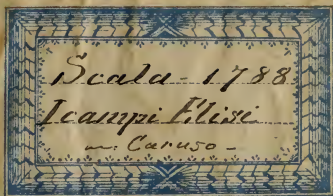 Scala - 1788
I campi Elisi
m: Caruso -